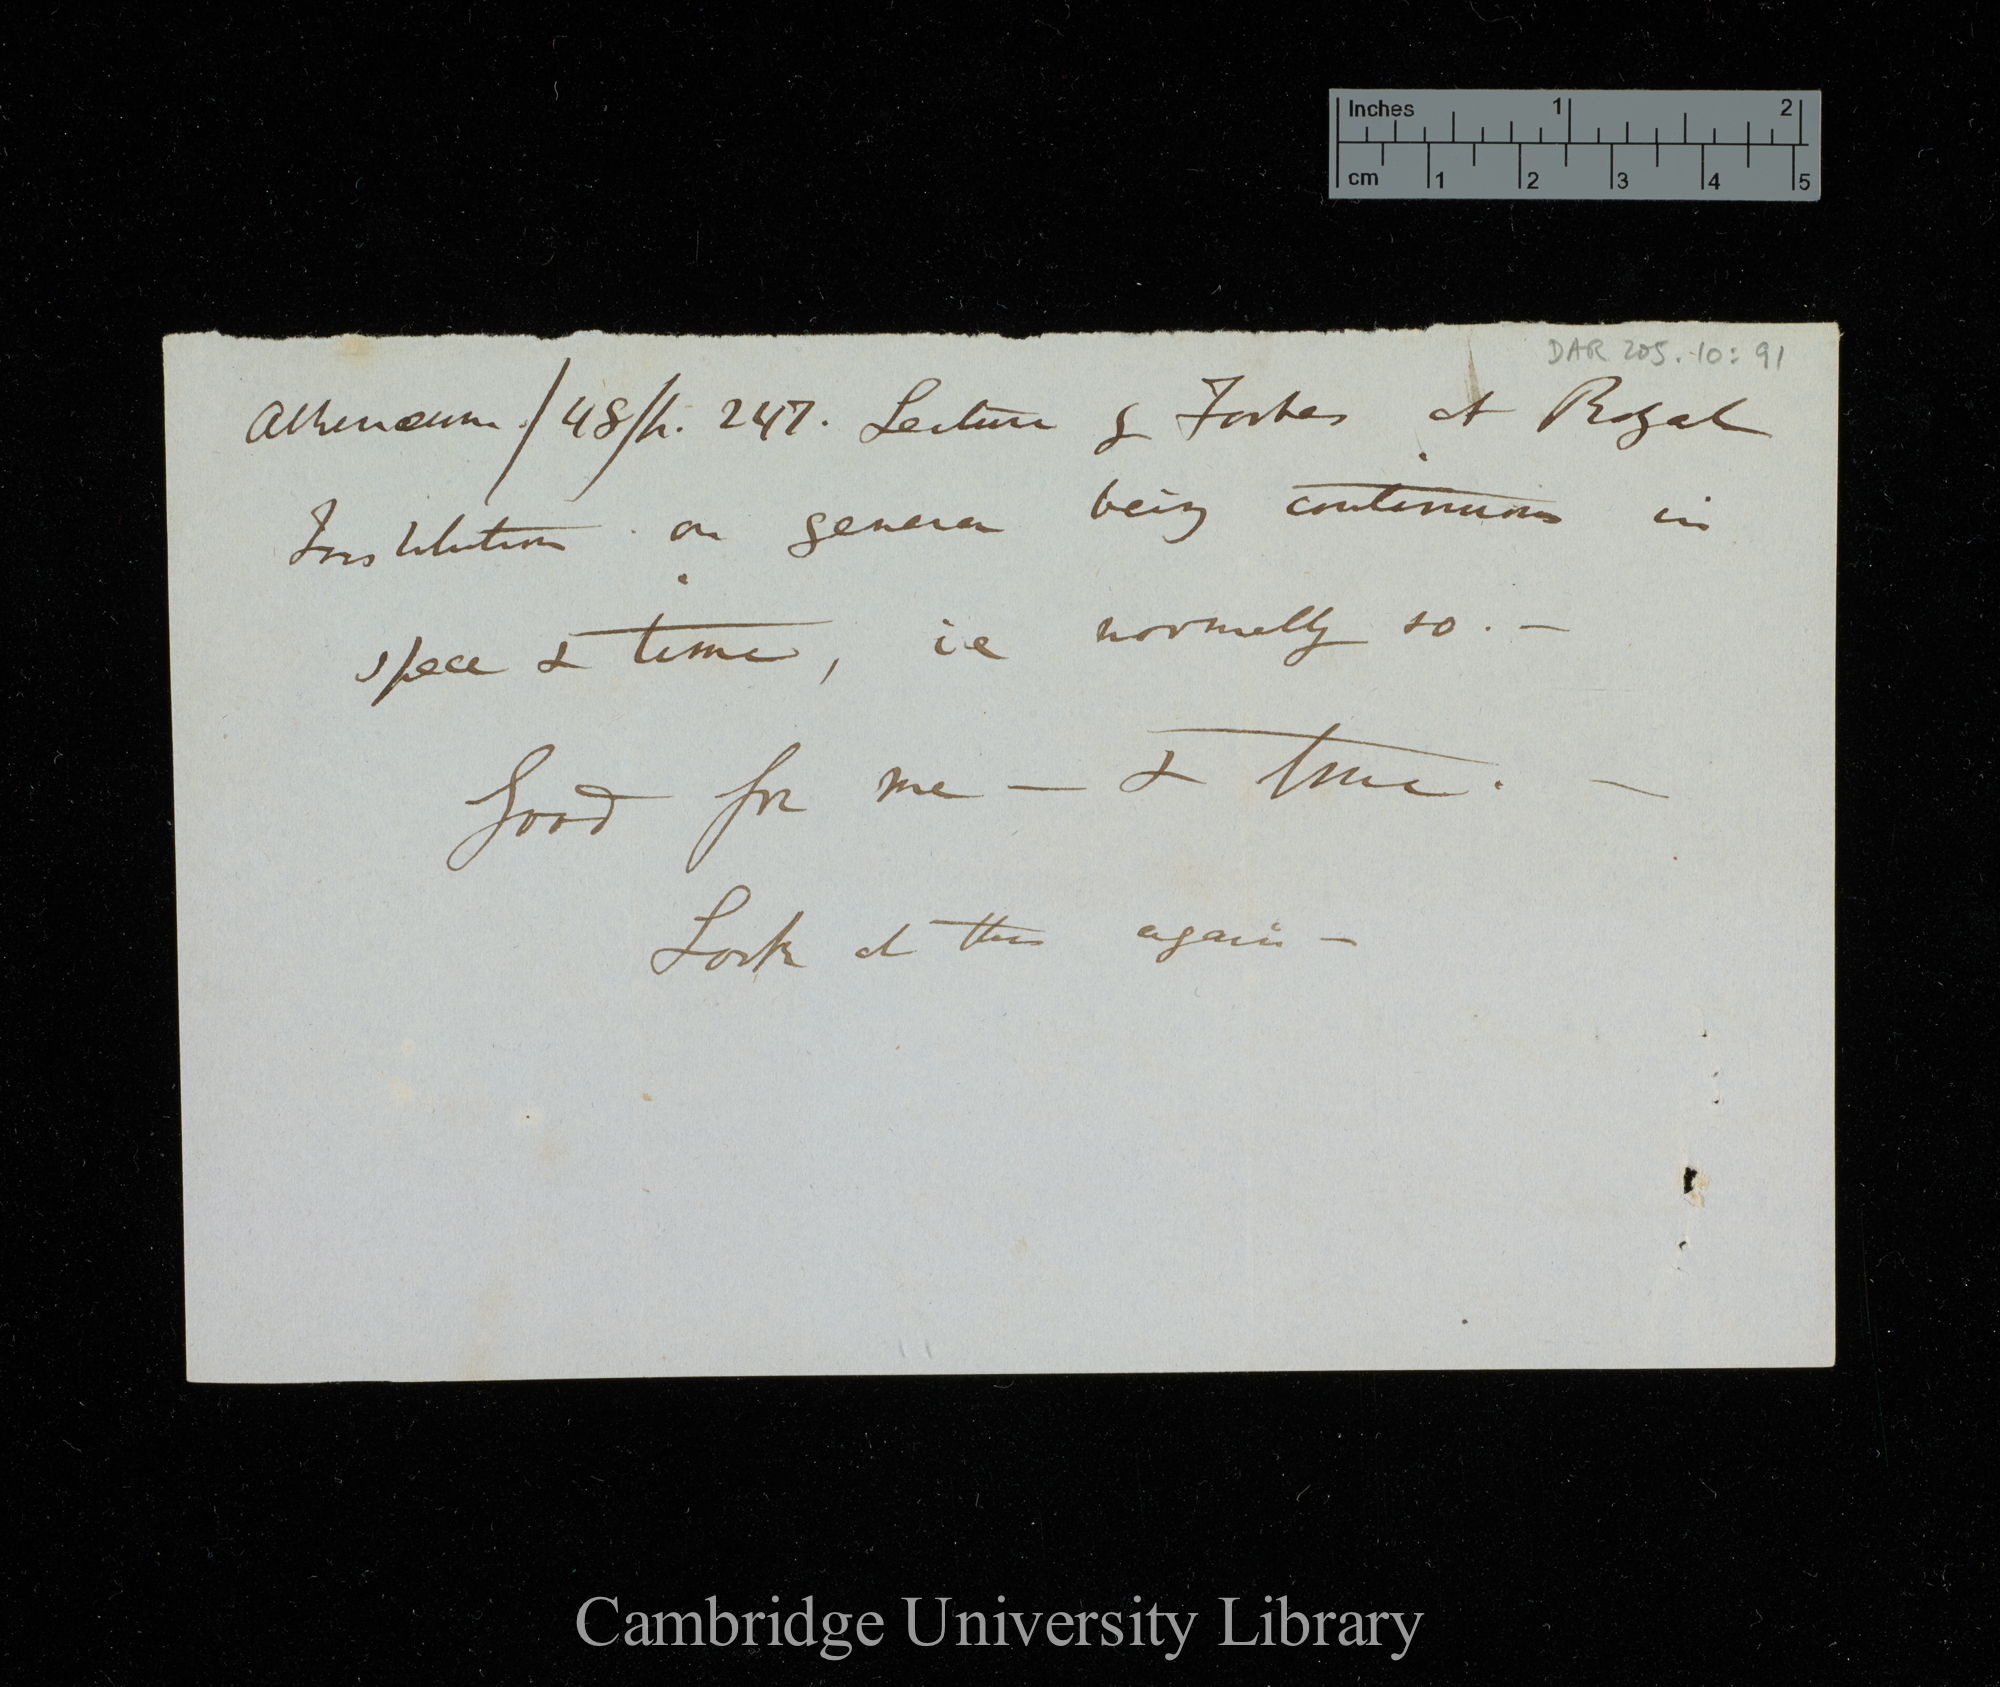 Inches 1 2
cm 1 2 3 4 5
DAR 205.10: 91
Athenæum./48/p. 247. Lecture of Forbes at Royal
Institution on genera being continuous in
space & time, ie normally so. —
Good for me — & true. —
Look at this again —
Cambridge University Library